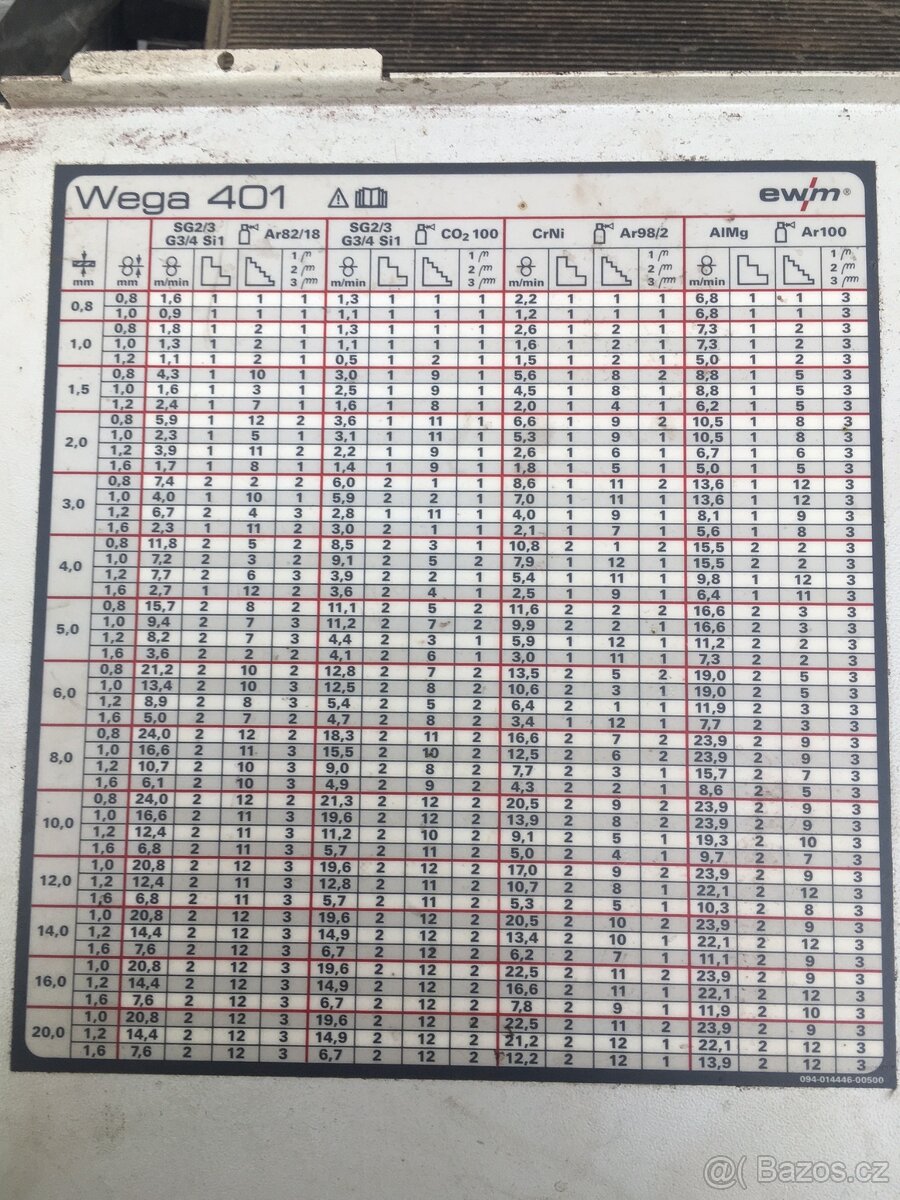 Wega 401 ewm®
SG2/3 G3/4 Si1 Ar82/18 SG2/3 G3/4 Si1 CO2 100 CrNi Ar98/2 AlMg Ar100
mm mm m/min 1 2 3 m/min 1 2 3 m/min 1 2 3 m/min 1 2 3
0,8 0,8 1,6 1 1 1 1,3 1 1 1 2,2 1 1 1 6,8 1 1 3
1,0 0,9 1 1 1 1,1 1 1 1 1,2 1 1 1 6,8 1 1 3
1,0 0,8 1,8 1 2 1 1,3 1 1 1 2,6 1 2 1 7,3 1 2 3
1,0 1,3 1 2 1 1,1 1 1 1 1,6 1 2 1 7,3 1 2 3
1,2 1,1 1 2 1 0,5 1 2 1 1,5 1 2 1 5,0 1 2 3
1,5 0,8 4,3 1 10 1 3,0 1 9 1 5,6 1 8 2 8,8 1 5 3
1,0 1,6 1 3 1 2,5 1 9 1 4,5 1 8 1 8,8 1 5 3
1,2 2,4 1 7 1 1,6 1 8 1 2,0 1 4 1 6,2 1 5 3
2,0 0,8 5,9 1 12 2 3,6 1 11 1 6,6 1 9 2 10,5 1 8 3
1,0 2,3 1 5 1 3,1 1 11 1 5,3 1 9 1 10,5 1 8 3
1,2 3,9 1 11 2 2,2 1 9 1 2,6 1 6 1 6,7 1 6 3
1,6 1,7 1 8 1 1,4 1 9 1 1,8 1 5 1 5,0 1 5 3
3,0 0,8 7,4 2 2 2 6,0 2 1 1 8,6 1 11 2 13,6 1 12 3
1,0 4,0 1 10 1 5,9 2 2 1 7,0 1 11 1 13,6 1 12 3
1,2 6,7 2 4 3 2,8 1 11 1 4,0 1 9 1 8,1 1 9 3
1,6 2,3 1 11 2 3,0 2 1 1 2,1 1 7 1 5,6 1 8 3
4,0 0,8 11,8 2 5 2 8,5 2 3 1 10,8 2 1 2 15,5 2 2 3
1,0 7,2 2 3 2 9,1 2 5 2 7,9 1 12 1 15,5 2 2 3
1,2 7,7 2 6 3 3,9 2 2 1 5,4 1 11 1 9,8 1 12 3
1,6 2,7 1 12 2 3,6 2 4 1 2,5 1 9 1 6,4 1 11 3
5,0 0,8 15,7 2 8 2 11,1 2 5 2 11,6 2 2 2 16,6 2 3 3
1,0 9,4 2 7 3 11,2 2 7 2 9,9 2 2 1 16,6 2 3 3
1,2 8,2 2 7 3 4,4 2 3 1 5,9 1 12 1 11,2 2 2 3
1,6 3,6 2 2 2 4,1 2 6 1 3,0 1 11 1 7,3 2 2 3
6,0 0,8 21,2 2 10 2 12,8 2 7 2 13,5 2 5 2 19,0 2 5 3
1,0 13,4 2 10 3 12,5 2 8 2 10,6 2 3 1 19,0 2 5 3
1,2 8,9 2 8 3 5,4 2 5 2 6,4 2 1 1 11,9 2 3 3
1,6 5,0 2 7 2 4,7 2 8 2 3,4 1 12 1 7,7 2 3 3
8,0 0,8 24,0 2 12 2 18,3 2 11 2 16,6 2 7 2 23,9 2 9 3
1,0 16,6 2 11 3 15,5 2 10 2 12,5 2 6 2 23,9 2 9 3
1,2 10,7 2 10 3 9,0 2 8 2 7,7 2 3 1 15,7 2 7 3
1,6 6,1 2 10 3 4,9 2 9 2 4,3 2 2 1 8,6 2 5 3
10,0 0,8 24,0 2 12 2 21,3 2 12 2 20,5 2 9 2 23,9 2 9 3
1,0 16,6 2 11 3 19,6 2 12 2 13,9 2 8 2 23,9 2 9 3
1,2 12,4 2 11 3 11,2 2 10 2 9,1 2 5 1 19,3 2 10 3
1,6 6,8 2 11 3 5,7 2 11 2 5,0 2 4 1 9,7 2 7 3
12,0 1,0 20,8 2 12 3 19,6 2 12 2 17,0 2 9 2 23,9 2 9 3
1,2 12,4 2 11 3 12,8 2 11 2 10,7 2 8 1 22,1 2 12 3
1,6 6,8 2 11 3 5,7 2 11 2 5,3 2 5 1 10,3 2 8 3
14,0 1,0 20,8 2 12 3 19,6 2 12 2 20,5 2 10 2 23,9 2 9 3
1,2 14,4 2 12 3 14,9 2 12 2 13,4 2 10 1 22,1 2 12 3
1,6 7,6 2 12 3 6,7 2 12 2 6,2 2 7 1 11,1 2 9 3
16,0 1,0 20,8 2 12 3 19,6 2 12 2 22,5 2 11 2 23,9 2 9 3
1,2 14,4 2 12 3 14,9 2 12 2 16,6 2 11 1 22,1 2 12 3
1,6 7,6 2 12 3 6,7 2 12 2 7,8 2 9 1 11,9 2 10 3
20,0 1,0 20,8 2 12 3 19,6 2 12 2 22,5 2 11 2 23,9 2 9 3
1,2 14,4 2 12 3 14,9 2 12 2 21,2 2 12 1 22,1 2 12 3
1,6 7,6 2 12 3 6,7 2 12 2 12,2 2 12 1 13,9 2 12 3
094-014446-00500
@( Bazos.cz